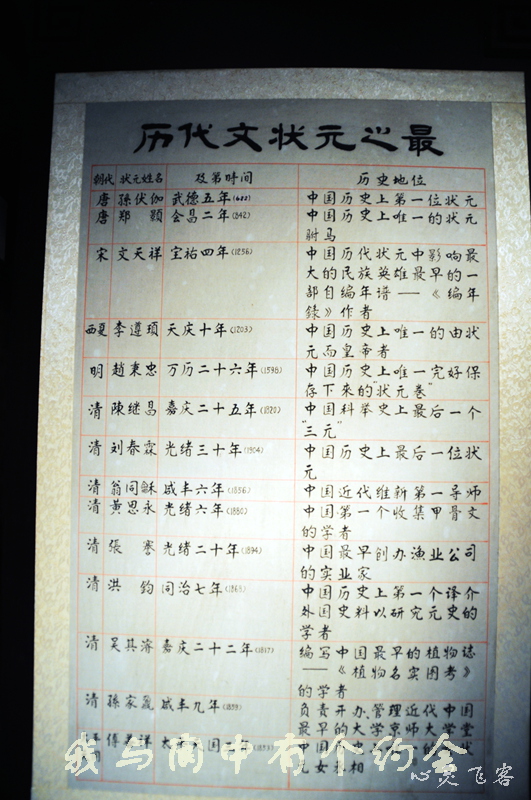 历代文状元之最
朝代 状元姓名 及第时间 历史地位
唐 孫伏伽 武德五年(622) 中国历史上第一位状元
唐 郑颢 会昌二年(842) 中国历史上唯一的状元
驸马
宋 文天祥 宝祐四年(1256) 中国历代状元中影响最
大的民族英雄最早的一
部自编年谱——《编年
錄》作者
西夏 李遵頊 天庆十年(1203) 中国历史上唯一的由状
元而皇帝者
明 趙秉忠 万历二十六年(1598) 中国历史上唯一完好保
存下来的"状元卷"
清 陳继昌 嘉庆二十五年(1820) 中国科举史上最后一个
"三元"
清 刘春霖 光绪三十年(1904) 中国历史上最后一位状
元
清 翁同龢 咸丰六年(1856) 中国近代维新第一导师
清 黄思永 光绪六年(1880) 中国第一个收集甲骨文
的学者
清 張謇 光绪二十年(1894) 中国最早创办渔业公司
的实业家
清 洪钧 同治七年(1868) 中国历史上第一个译介
外国史料以研究元史的
学者
清 吴其濬 嘉庆二十二年(1817) 编写中国最早的植物誌
——《植物名实图考》
的学者
清 孫家鼐 咸丰九年(1859) 负责开办、管理近代中国
最早的大学京师大学堂
傅 祥 太 国 中国
元女 相
我与阆中有个约会
心灵飞客